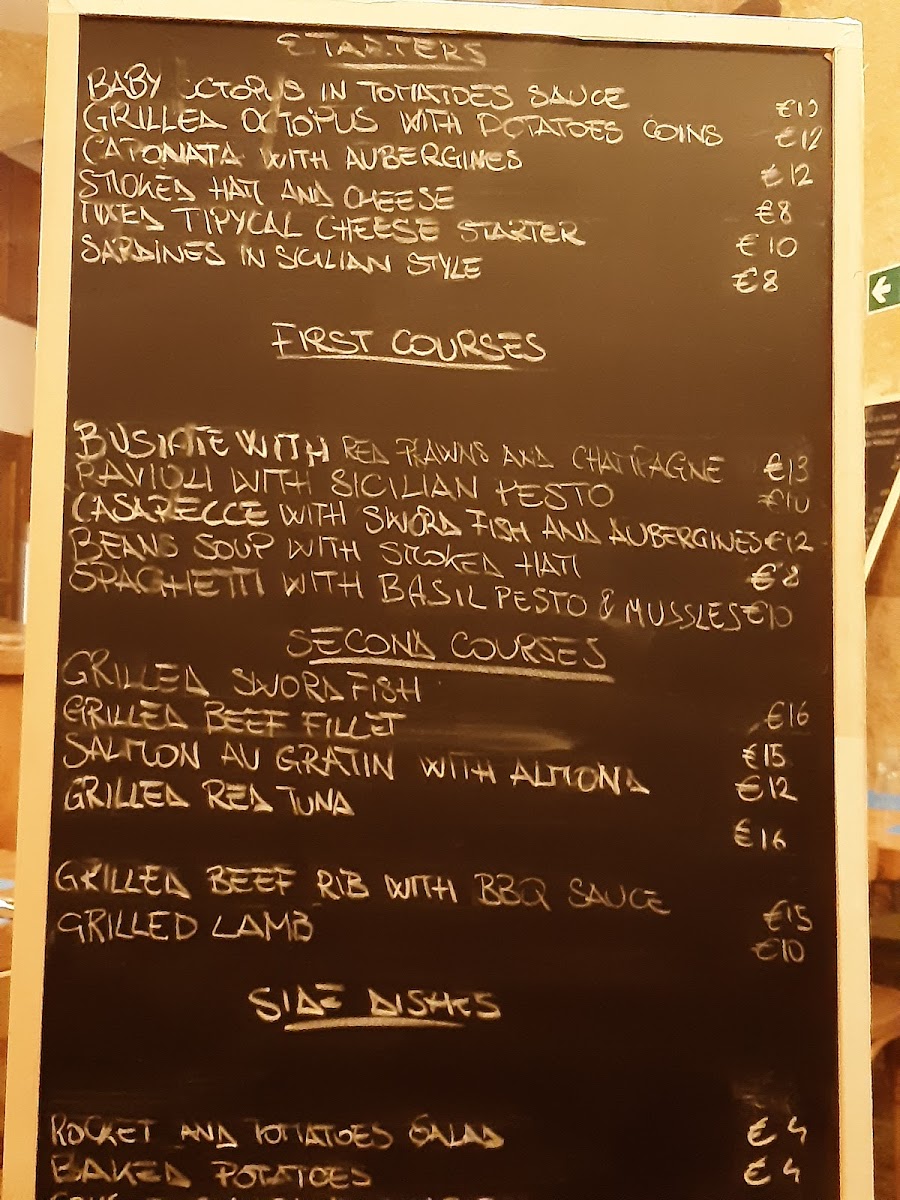 STARTERS
BABY OCTOPUS IN TOMATOES SAUCE €10
GRILLED OCTOPUS WITH POTATOES COINS €12
CAPONATA WITH AUBERGINES €12
SMOKED HAM AND CHEESE €8
MIXED TIPYCAL CHEESE STARTER €10
SARDINES IN SICILIAN STYLE €8
FIRST COURSES
BUSIATE WITH RED PRAWNS AND CHAMPAGNE €13
RAVIOLI WITH SICILIAN PESTO €10
CASARECCE WITH SWORD FISH AND AUBERGINES €12
BEANS SOUP WITH SMOKED HAM €8
SPAGHETTI WITH BASIL PESTO & MUSSLES €10
SECOND COURSES
GRILLED SWORD FISH €16
GRILLED BEEF FILLET €15
SALMON AU GRATIN WITH ALMOND €12
GRILLED RED TUNA €16
GRILLED BEEF RIB WITH BBQ SAUCE €15
GRILLED LAMB €10
SIDE DISHES
ROCKET AND TOMATOES SALAD €4
BAKED POTATOES €4